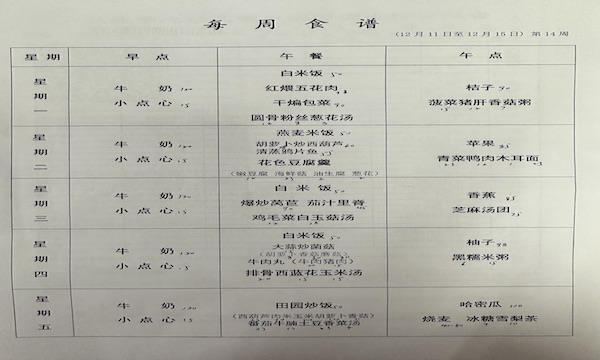 每周食谱
(12月11日至12月15日) 第14周
星期 早点 午餐 午点
星期一
牛奶
小点心 15
白米饭 50
红煨五花肉
干煸包菜 90
圆骨粉丝葱花汤
桔子 90
菠菜猪肝香菇粥
星期二
牛奶
小点心 15
燕麦米饭 50
胡萝卜炒西葫芦
清蒸鸦片鱼
花色豆腐羹
(嫩豆腐 海鲜菇 油生菜 葱花)
苹果
青菜鸭肉木耳面
星期三
牛奶
小点心 15
白米饭 50
爆炒莴苣 茄汁里脊
鸡毛菜白玉菇汤
香蕉
芝麻汤团
星期四
牛奶
小点心 15
白米饭 50
大蒜炒菌菇
(胡萝卜香菇蘑菇)
牛肉丸 (牛肉猪肉)
排骨西蓝花玉米汤
柚子
黑糯米粥
星期五
牛奶
小点心 15
田园炒饭
(西葫芦肉米玉米胡萝卜香菇)
番茄牛腩土豆香菜汤
哈密瓜
烧麦 冰糖雪梨茶